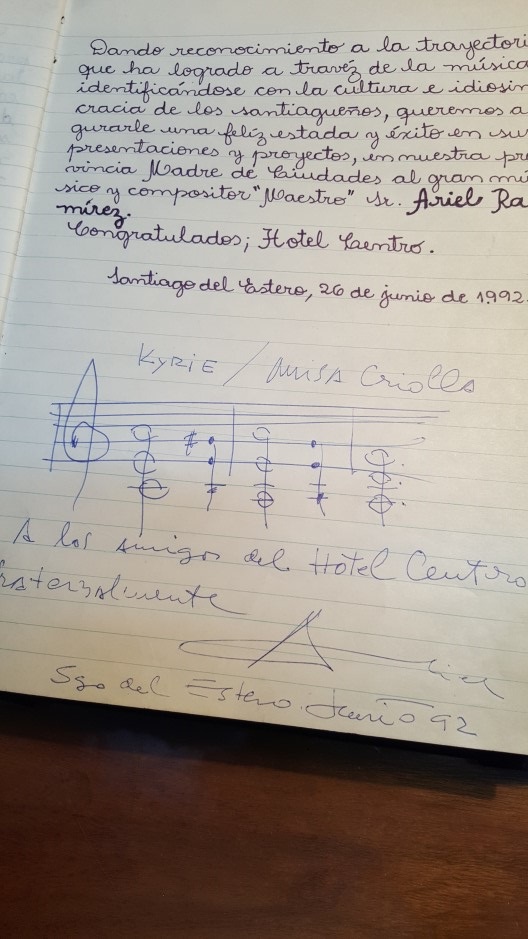 Dando reconocimiento a la trayectori
que ha logrado a travéz de la música
identificándose con la cultura e idiosin
cracia de los santiagueños, queremos a
gurarle una felíz estada y éxito en su
presentaciones y proyectos, en nuestra pro
vincia Madre de Ciudades al gran mú
sico y compositor "Maestro" Sr. Ariel Ra
mírez.
Congratulados; Hotel Centro.
Santiago del Estero, 26 de junio de 1.992.
KYRIE / MISA Criolla
A los amigos del Hotel Centro
fraternalmente
Ariel
Sgo del Estero. Junio 92